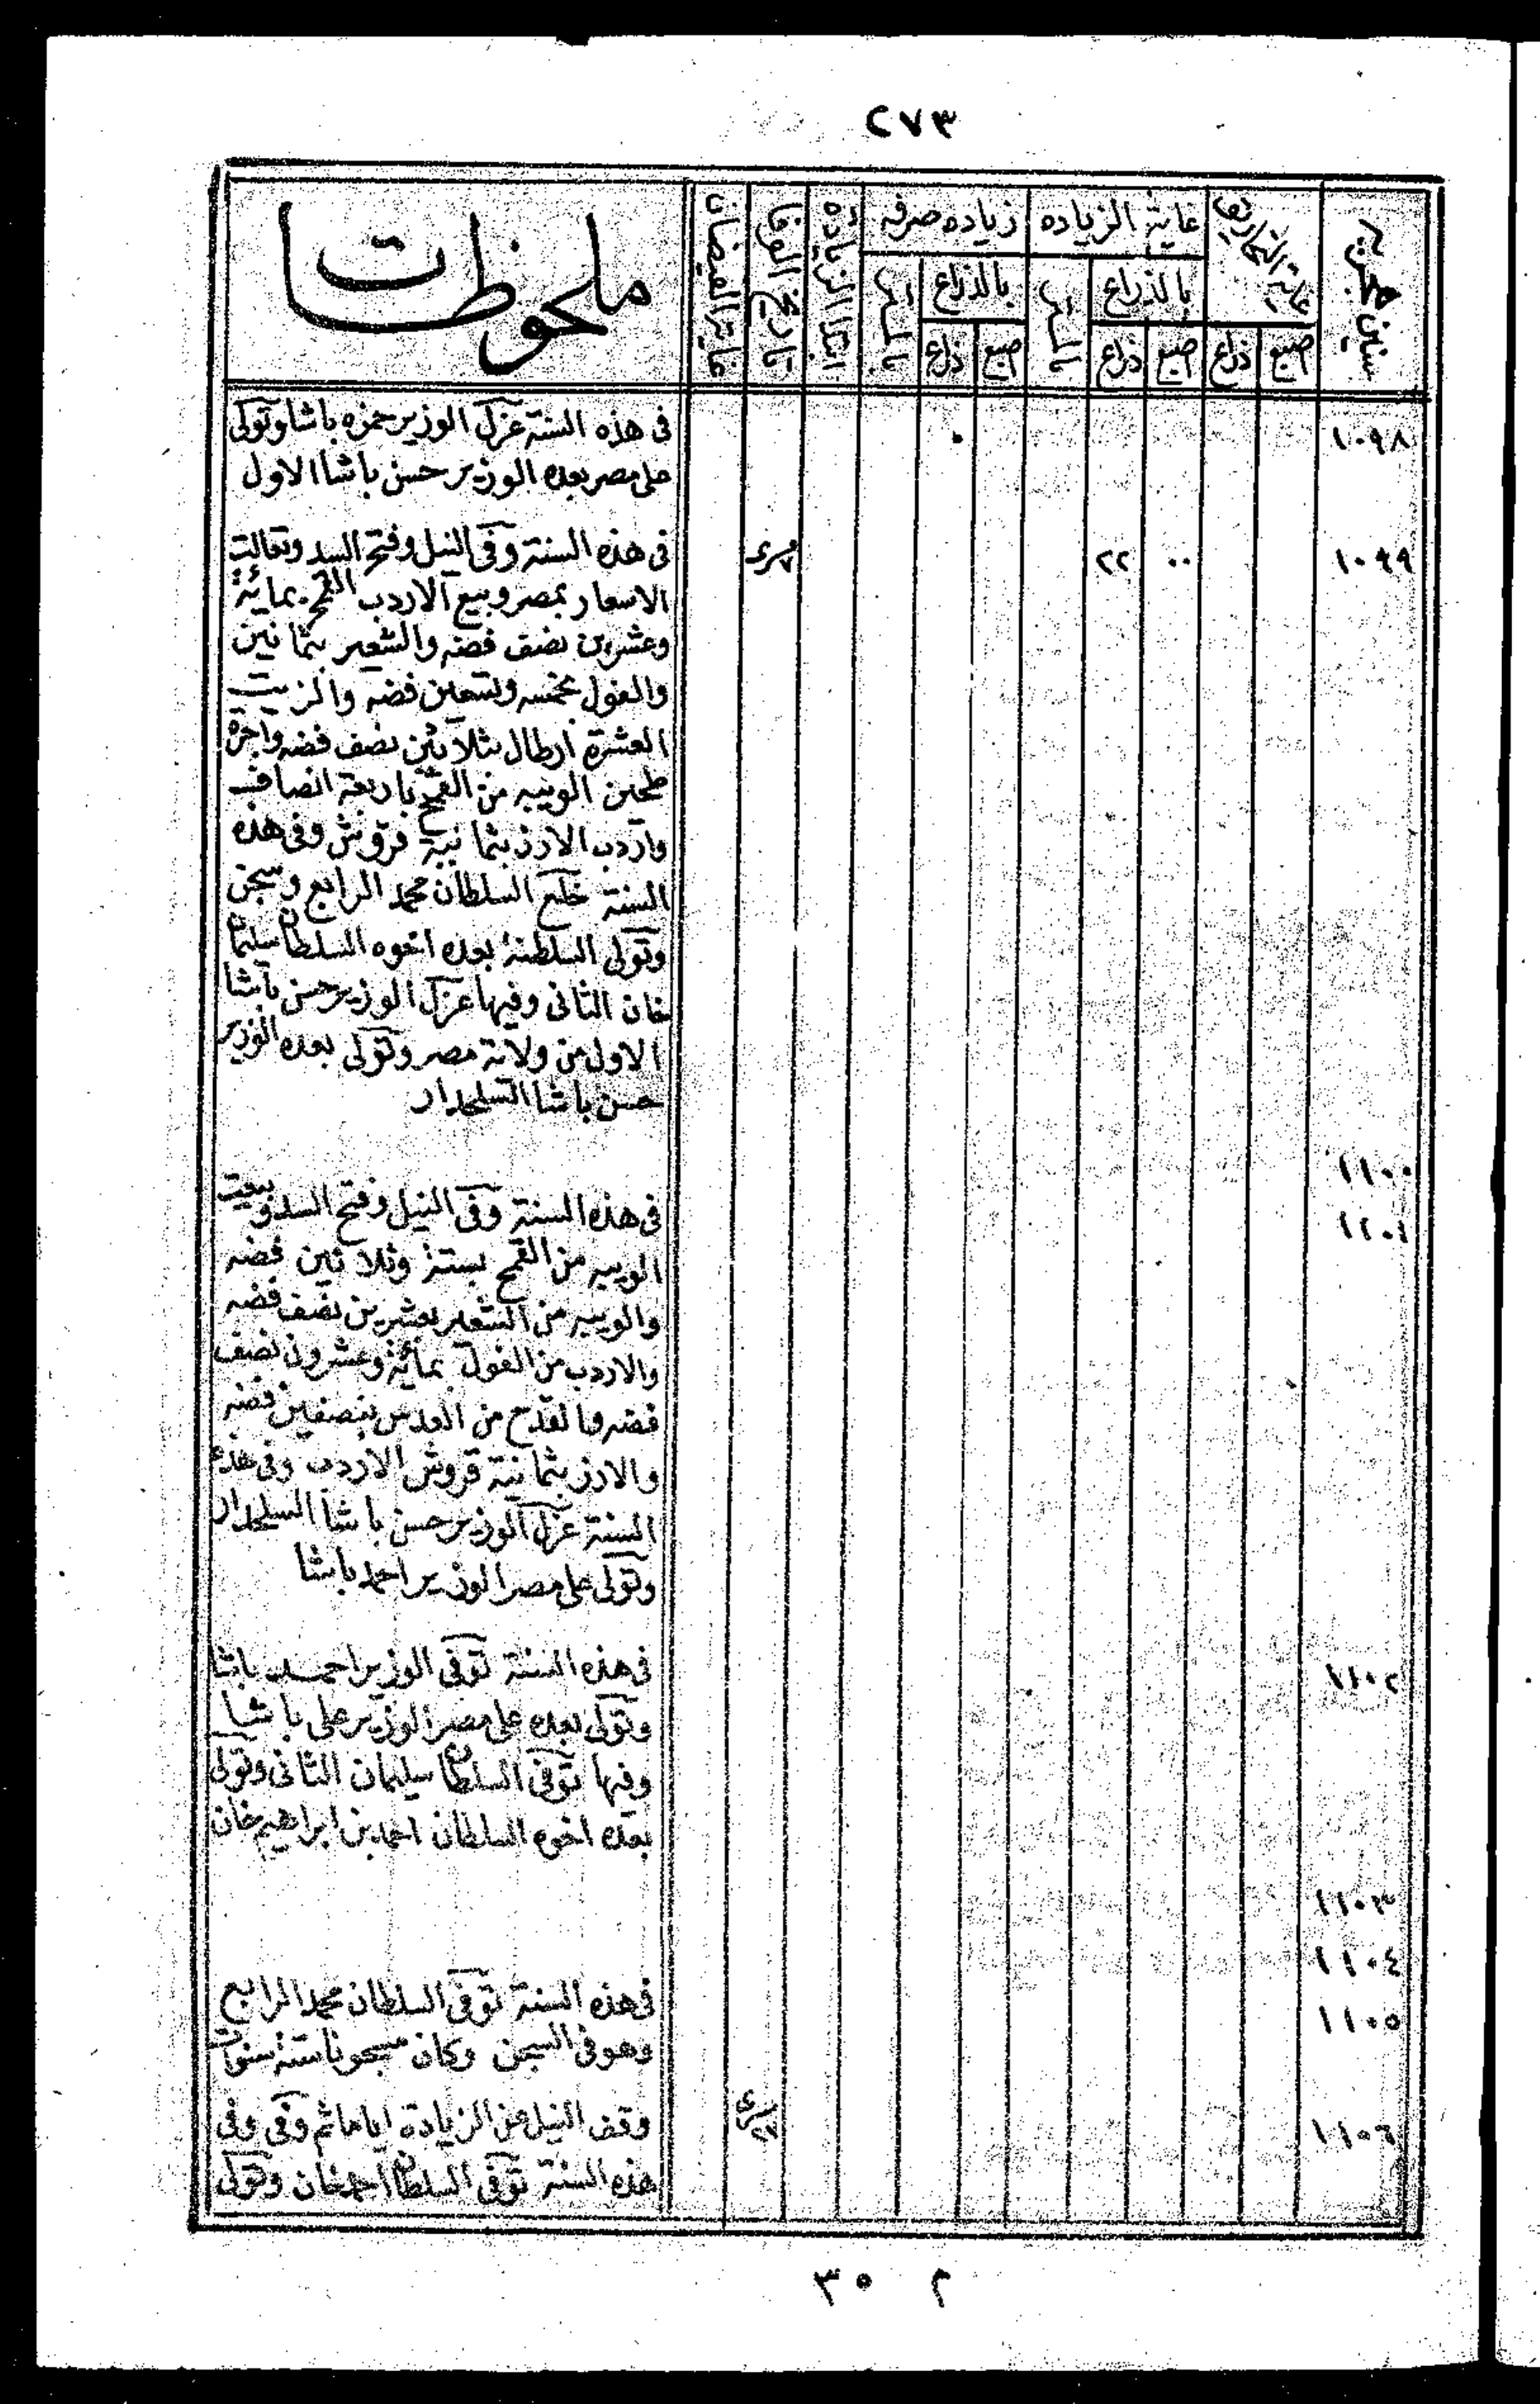 ٢٧٣
سنين هجريه
غاية التحاريق
غاية الزياده
زياده صرفه
ابتدا الزياده
تاريخ الوفا
غاية الفيضان
ملحوظات
بالذراع
بالذراع
اصبع
ذراع
اصبع
ذراع
اصبع
ذراع
١٠٩٨
فى هذه السنة عزل الوزير حمزه باشا وتولى
على مصر بعده الوزير حسن باشا الاول
١٠٩٩
٠٠
٢٢
فى هذه السنة وفى النيل وفتح السد وتعالت
الاسعار بمصر وبيع الاردب القمح بمائة
وعشرين نصف فضه والشعير بثمانين
والفول بخمسه وتسعين فضه والزيت
العشرة ارطال بثلاثين نصف فضه واجرة
طحين الويبه من القمح باربعة انصاف
واردب الارز بثمانية قروش وفى هذه
السنة خلع السلطان محمد الرابع وسجن
وتولى السلطنة بعده اخوه السلطان سليمان
خان الثانى وفيها عزل الوزير حسن باشا
الاول من ولاية مصر وتولى بعده الوزير
حسن باشا السلحدار
١١٠٠
١١٠١
فى هذه السنة وفى النيل وفتح السد وبيعت
الويبه من القمح بستة وثلاثين فضه
والويبه من الشعير بعشرين نصف فضه
والاردب من الفول بمائة وعشرون نصف
فضه والقدح من العدس بنصفين فضه
والارز بثمانية قروش الاردب وفى هذه
السنة عزل الوزير حسن باشا السلحدار
وتولى على مصر الوزير احمد باشا
١١٠٢
فى هذه السنة توفى الوزير احمد باشا
وتولى بعده على مصر الوزير على باشا
وفيها توفى السلطان سليمان الثانى وتولى
بعده اخوه السلطان احمد بن ابراهيم خان
١١٠٣
١١٠٤
١١٠٥
فى هذه السنة توفى السلطان محمد الرابع
وهو فى السجن وكان مسجونا ستة سنوات
١١٠٦
وقف النيل عن الزيادة اياما ثم وفى وفى
هذه السنة توفى السلطان احمد خان وتولى
م ٣٥